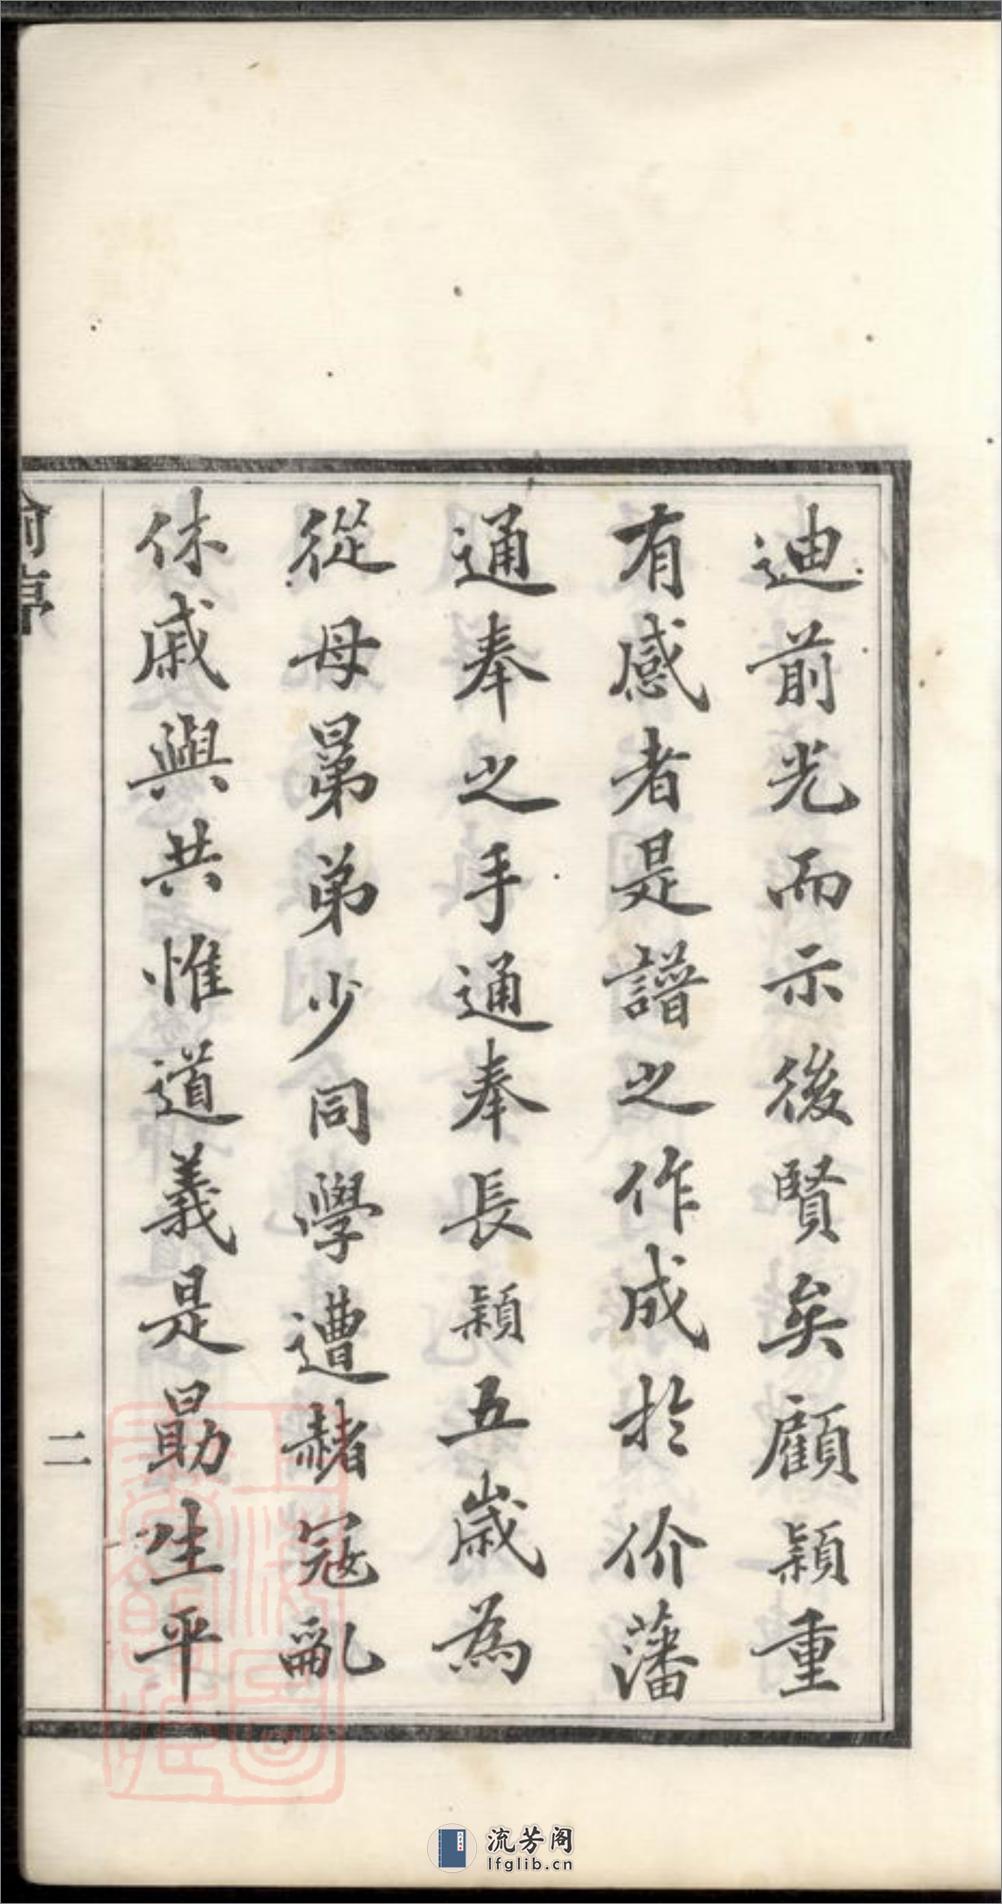 迪前光而示後賢矣顧穎重
有感者是譜之作成於价藩
通奉之手通奉長穎五歲為
從母晜弟少同學遭赭寇亂
休戚與共惟道義是勖生平
二
流芳阁
lfglib.cn